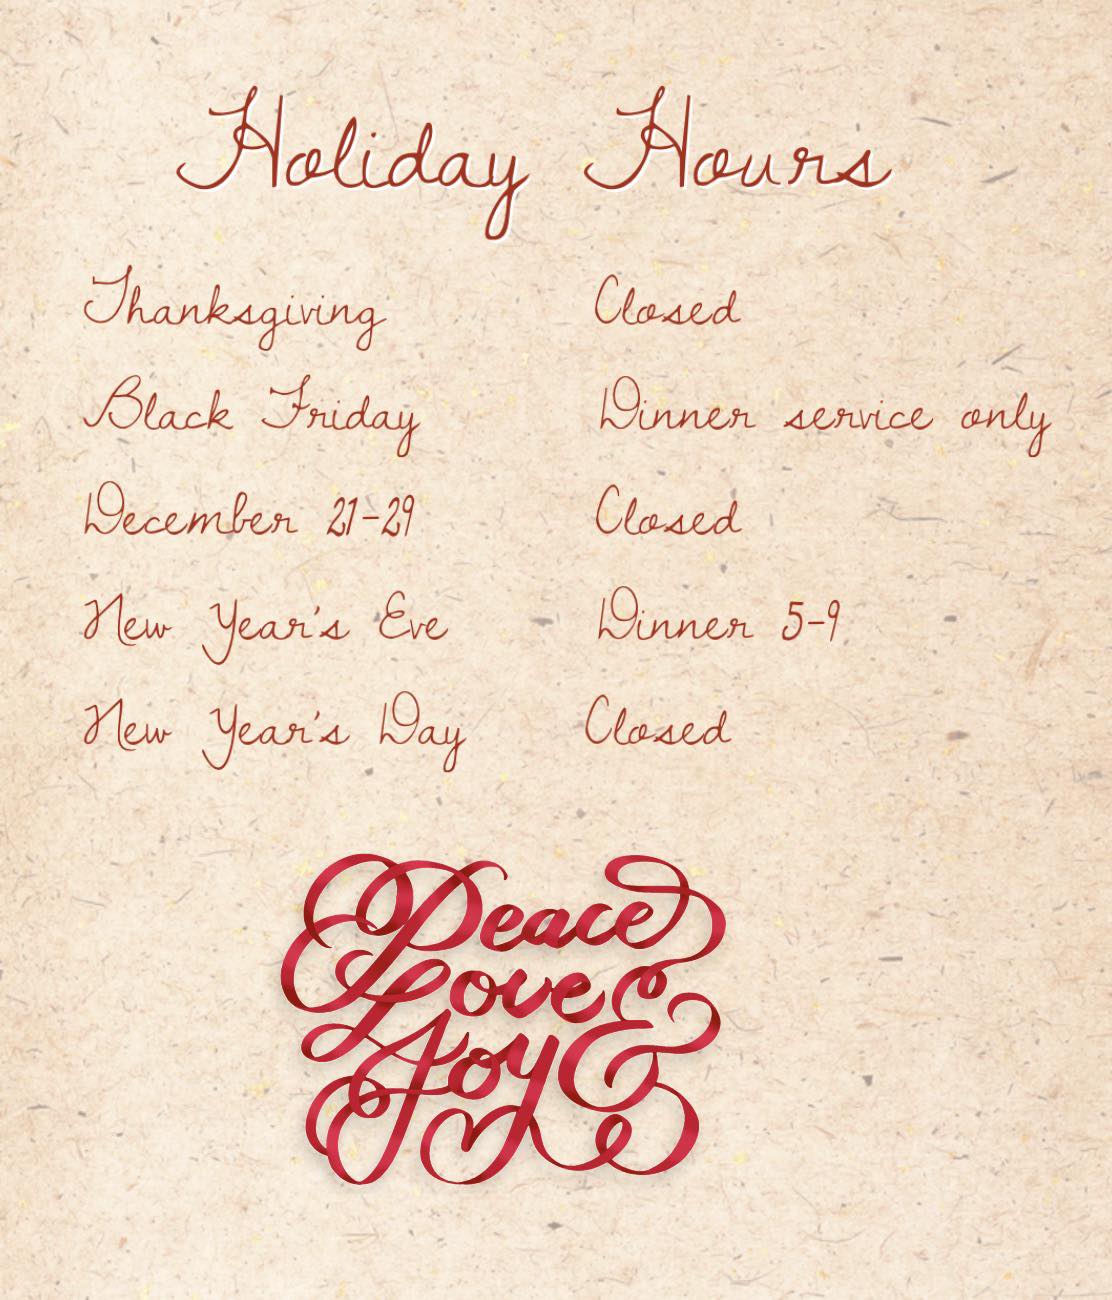 Holiday Hours
Thanksgiving Closed
Black Friday Dinner service only
December 21-29 Closed
New Year's Eve Dinner 5-9
New Year's Day Closed
Peace
Love &
Joy